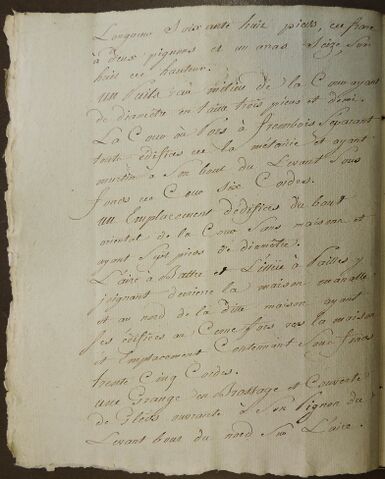 Longueur Soixante huit pieds, en franc
à deux pignons et un amas Seize Sur
huit en hauteur.
un Puits au milieu de la Cour ayant
de diamètre en faux trois pieds et demi.
La Cour au bois à frambois Separant
toute édifices de la métairie et ayant
murtin à Son bout du Levant Sous
fonds de Cour Six Cordes.
un Emplacement dédifices du bout
oriental de la Cour Sans maisiere et
ayant Sept pieds de diamètre.
L'aire à Battre et L'issüe à Pailles y
joignant derriere la maison manalle
et au nord de la ditte maison ayant
Ses édifices au Cerne fors vers la maison
et Emplacement Contenant Sous fonds
trente Cinq Cordes.
une Grange en Brossage et Couverte
de Gleds ouvrante à Son Pignon du
Levant bout du nord Sur L'aire.